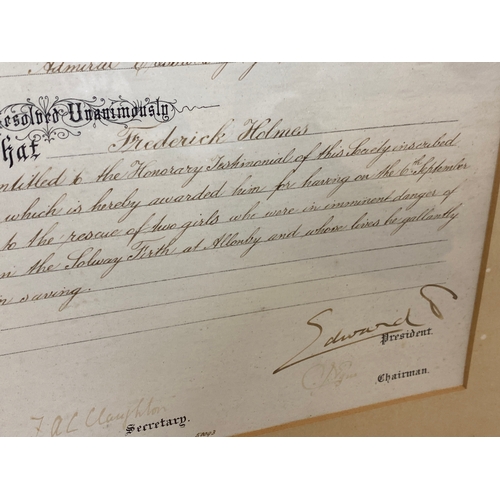 Admiral
Resolved Unanimously
That Frederick Holmes
entitled to the Honorary Testimonial of this Society inscribed
which is hereby awarded him for having on the 6th September
to the rescue of two girls who were in imminent danger of
in the Solway Firth at Allonby and whose lives he gallantly
in saving.
Edward P
President.
Chairman.
F A C Claughton
Secretary.